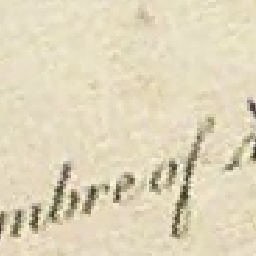 mbre of